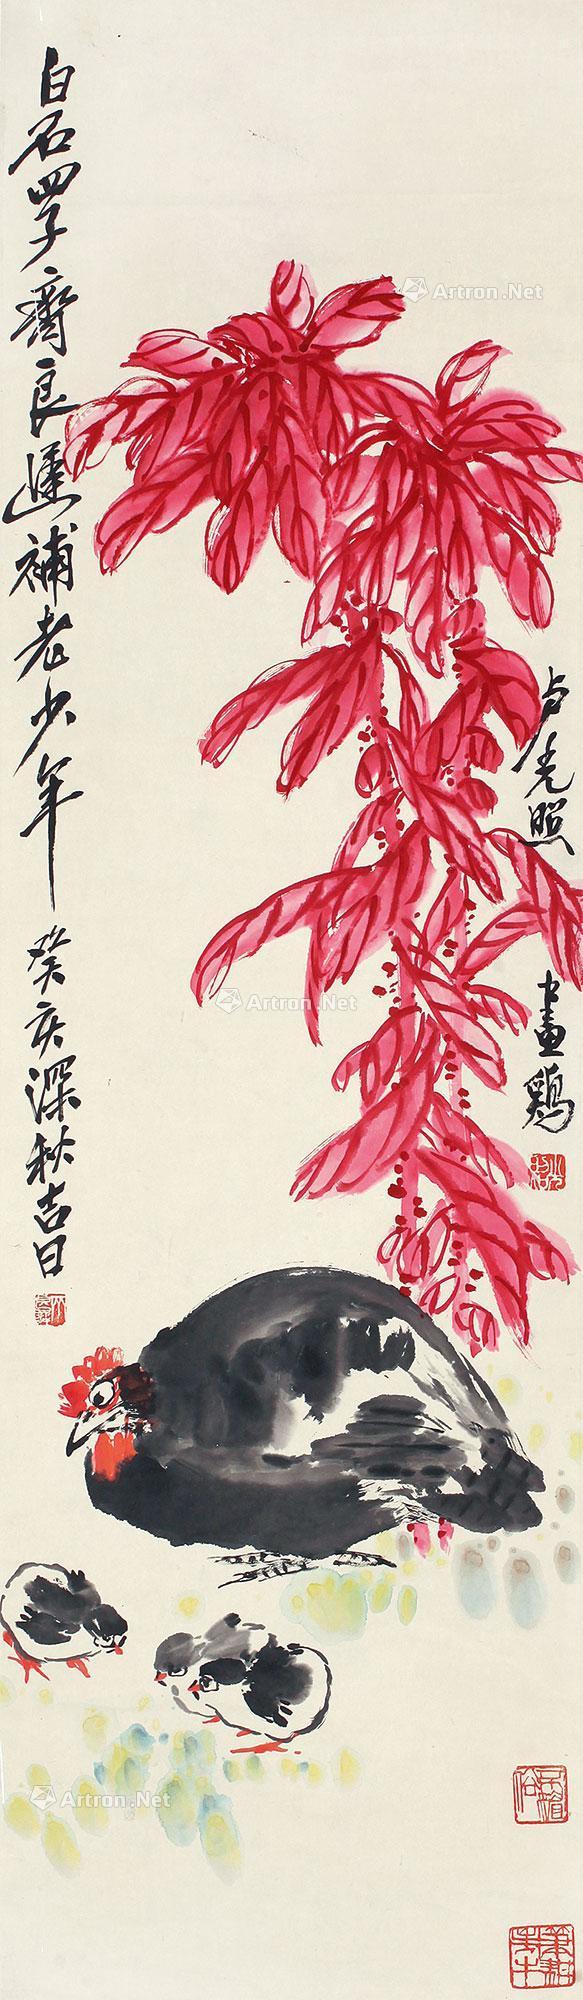 白石四子齊良遲補老少年
癸亥深秋吉日
卢光照
畫鷄
Artron.Net
Artron.Net
Artron.Net